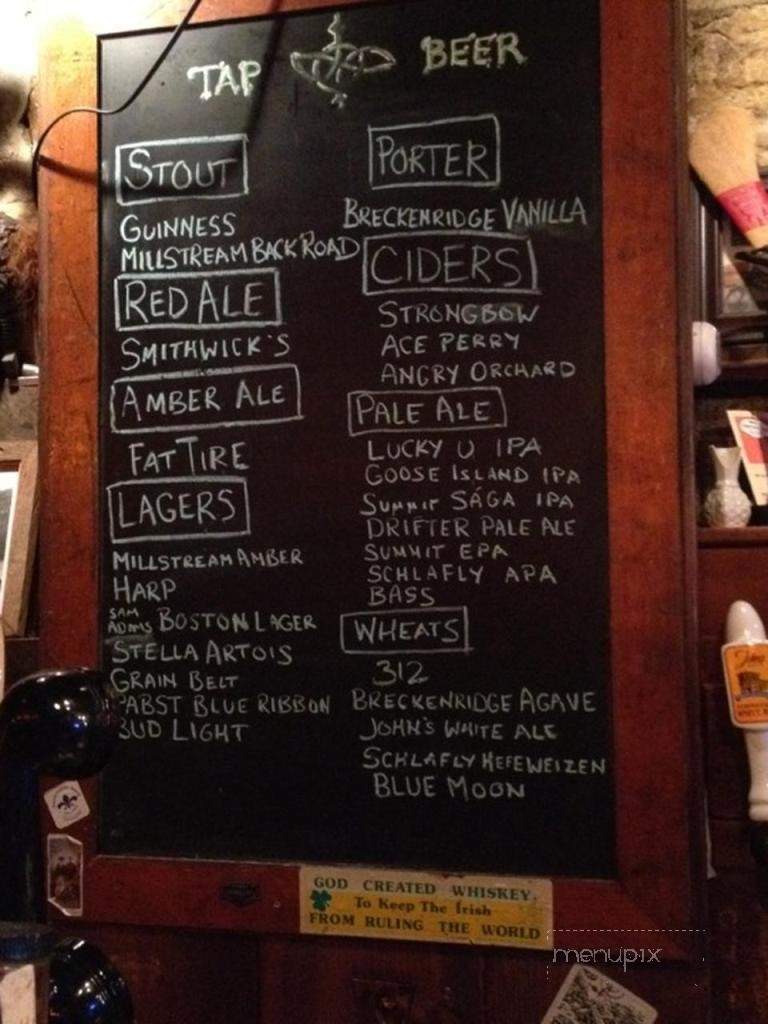 TAP BEER
STOUT
GUINNESS
MILLSTREAM BACK ROAD
RED ALE
SMITHWICK'S
AMBER ALE
FAT TIRE
LAGERS
MILLSTREAM AMBER
HARP
SAM ADAMS BOSTON LAGER
STELLA ARTOIS
GRAIN BELT
PABST BLUE RIBBON
BUD LIGHT
PORTER
BRECKENRIDGE VANILLA
CIDERS
STRONGBOW
ACE PERRY
ANGRY ORCHARD
PALE ALE
LUCKY U IPA
GOOSE ISLAND IPA
SUMMIT SÁGA IPA
DRIFTER PALE ALE
SUMMIT EPA
SCHLAFLY APA
BASS
WHEATS
312
BRECKENRIDGE AGAVE
JOHN'S WHITE ALE
SCHLAFLY HEFEWEIZEN
BLUE MOON
GOD CREATED WHISKEY
To Keep The Irish
FROM RULING THE WORLD
menupix